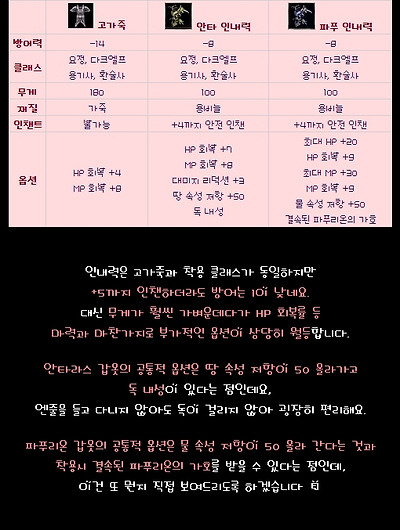 고가죽 안타 인내력 파푸 인내력
방어력 -14 -8 -8
클래스 요정, 다크엘프 용기사, 환술사 요정, 다크엘프 용기사, 환술사 요정, 다크엘프 용기사, 환술사
무게 180 100 100
재질 가죽 용비늘 용비늘
인챈트 불가능 +4까지 안전 인챈 +4까지 안전 인챈
옵션
HP 회복 +4
MP 회복 +8
HP 회복 +7
MP 회복 +8
대미지 리덕션 +3
땅 속성 저항 +50
독 내성
최대 HP +20
HP 회복 +9
최대 MP +30
MP 회복 +9
물 속성 저항 +50
결속된 파푸리온의 가호
인내력은 고가죽과 착용 클래스가 동일하지만
+5까지 인챈하더라도 방어는 1이 낮네요.
대신 무게가 훨씬 가벼운데다가 HP 회복률 등
마력과 마찬가지로 부가적인 옵션이 상당히 월등합니다.
안타라스 갑옷의 공통적 옵션은 땅 속성 저항이 50 올라가고
독 내성이 있다는 점인데요,
엔줄을 들고 다니지 않아도 독이 걸리지 않아 굉장히 편리해요.
파푸리온 갑옷의 공통적 옵션은 물 속성 저항이 50 올라 간다는 것과
착용시 결속된 파푸리온의 가호를 받을 수 있다는 점인데,
이건 또 뭔지 직접 보여드리도록 하겠습니다